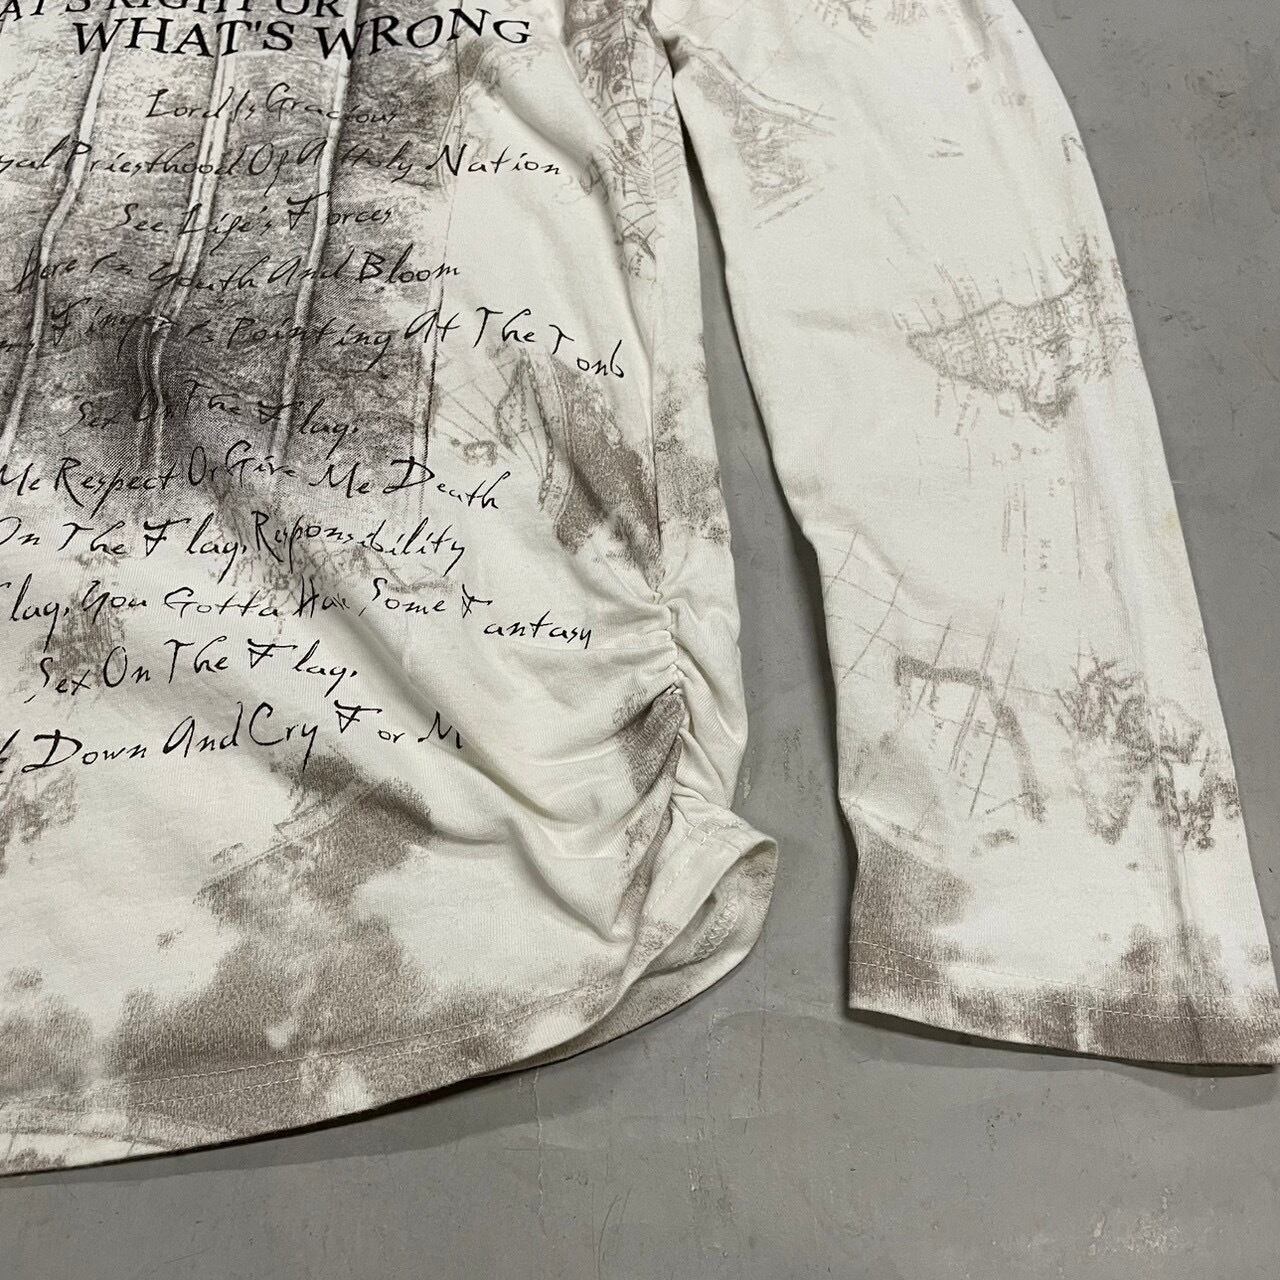 AT'S RIGHT OR
WHAT'S WRONG
Lord Is Gracious
yal Priesthood Of A Holy Nation
See Life's Forces
Here In Youth And Bloom
Fingers Pointing At The Tomb
Sex On The Flag.
Me Respect Or Give Me Death
On The Flag. Responsibility
lag. You Gotta Have Some Fantasy
Sex On The Flag.
Down And Cry For M